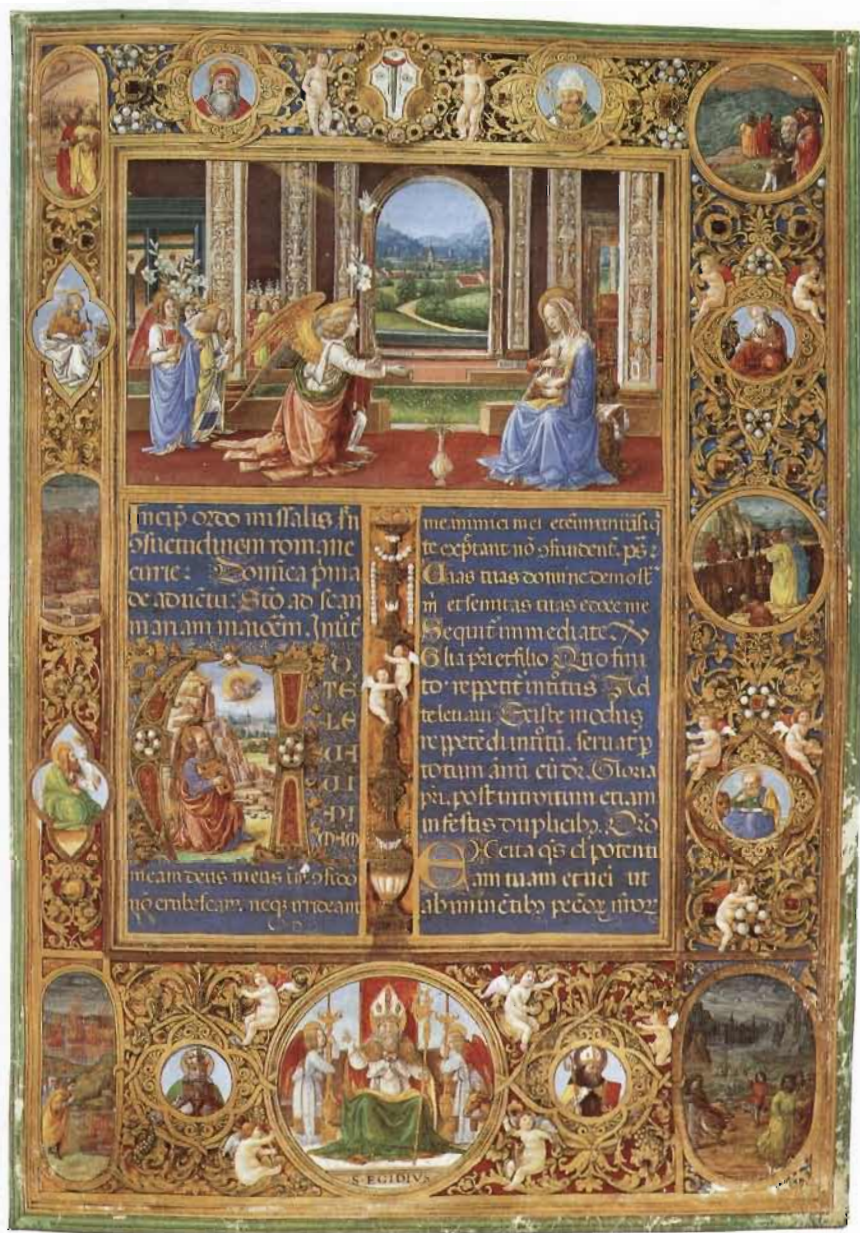 Incip̄ ordo missalis s̄m
ↄsuetudinem romane
curie: Domīca p̄ma
de aduētu: Stō ad scan
mariam maiorem. Introit̄
A
D
TE
LE
VA
VI
NI
MAM
meam deus meus in te ↄfido
nō erubescam, neq; irrideant
me inimici mei etenim uniūsi q̇
te exp̄tant nō ↄfundent̄. ps:
Uias tuas domine demost̄
m̄ et semitas tuas edoce me
Sequit̄ immediate
Glīa p̄ri et filio Quo fini
to repetit̄ introitus Ad
te leuaui Et iste modus
repetēdi introitū. seruat̄ p̄
totum ānū cū dr̄. Gloria
p̄ri. post introitum etiam
in festis duplicibꝫ. Oro
EXcita q̄s dn̄e potenti
am tuam et ueni ut
ab iminētibꝫ pecc̄oꝝ nr̄oꝝ
S·EGIDIVS·